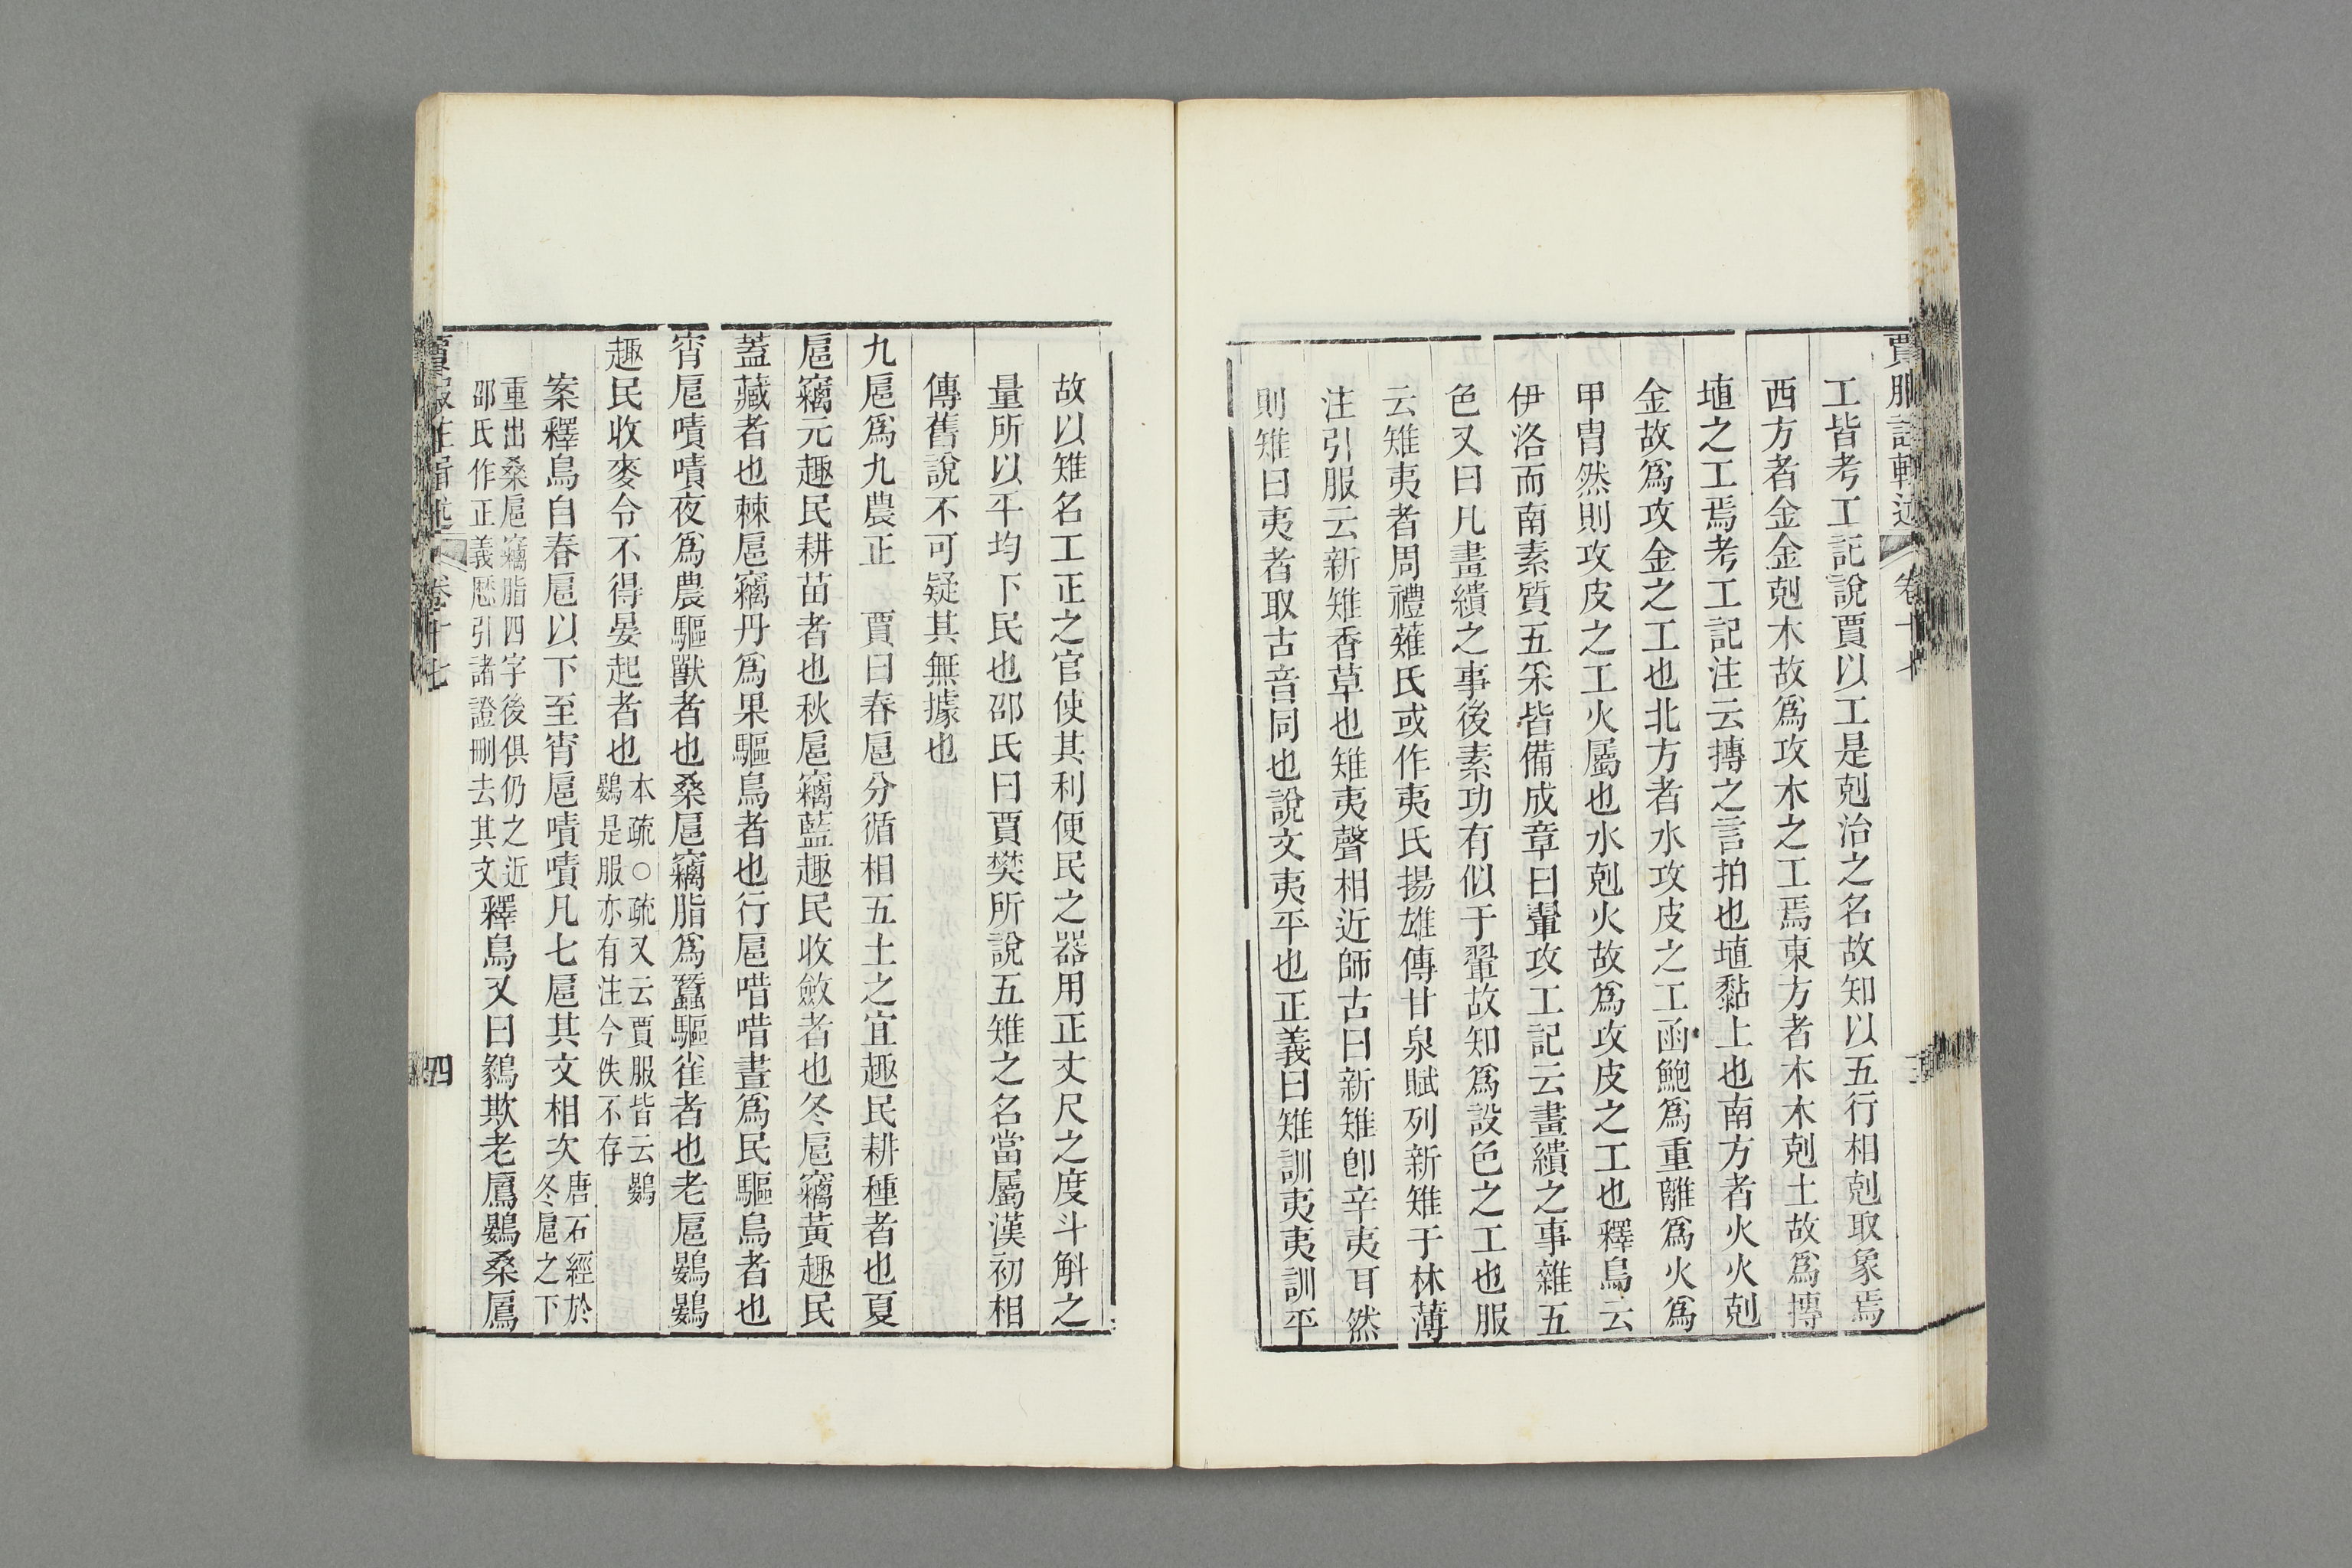 賈服註輯述 卷十七
工皆考工記說賈以工是剋治之名故知以五行相剋取象焉
西方者金金剋木故爲攻木之工焉東方者木木剋土故爲摶
埴之工焉考工記注云摶之言拍也埴黏土也南方者火火剋
金故爲攻金之工也北方者水攻皮之工函鮑爲重離爲火爲
甲胄然則攻皮之工火屬也水剋火故爲攻皮之工也釋鳥云
伊洛而南素質五采皆備成章曰翬攻工記云畫繢之事雜五
色又曰凡畫繢之事後素功有似于翬故知爲設色之工也服
云雉夷者周禮薙氏或作夷氏揚雄傳甘泉賦列新雉于林薄
注引服云新雉香草也雉夷聲相近師古曰新雉卽辛夷耳然
則雉曰夷者取古音同也說文夷平也正義曰雉訓夷夷訓平
故以雉名工正之官使其利便民之器用正丈尺之度斗斛之
量所以平均下民也邵氏曰賈樊所說五雉之名當屬漢初相
傳舊說不可疑其無據也
九扈爲九農正 賈曰春扈分循相五土之宜趣民耕種者也夏
扈竊元趣民耕苗者也秋扈竊藍趣民收斂者也冬扈竊黃趣民
蓋藏者也棘扈竊丹爲果驅鳥者也行扈唶唶晝爲民驅鳥者也
宵扈嘖嘖夜爲農驅獸者也桑扈竊脂爲蠶驅雀者也老扈鷃鷃
趣民收麥令不得晏起者也本疏○疏又云賈服皆云鷃鷃是服亦有注今佚不存
案釋鳥自春扈以下至宵扈嘖嘖凡七扈其文相次唐石經於冬扈之下
重出桑扈竊脂四字後俱仍之近邵氏作正義歷引諸證刪去其文釋鳥又曰鶨欺老鳸鷃桑鳸
卷十七 四